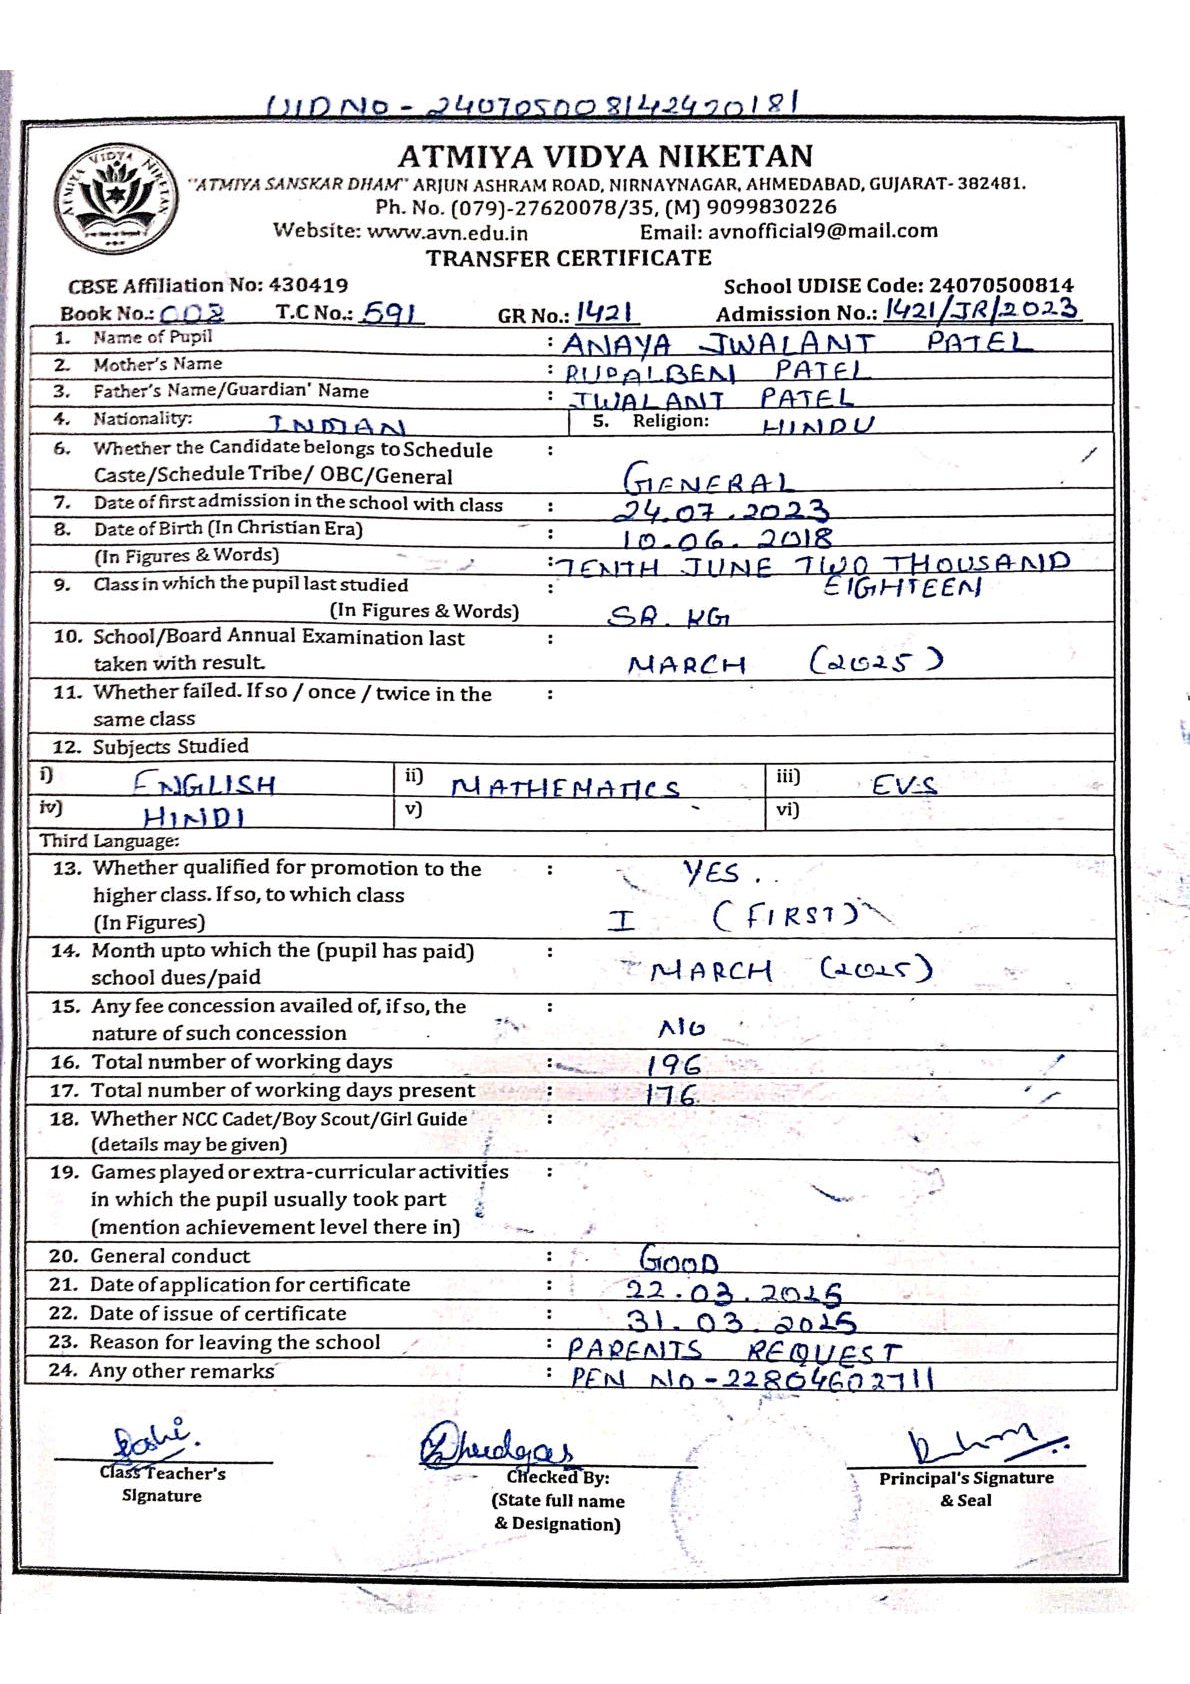 UID NO - 240705008142420181
ATMIYA VIDYA NIKETAN
ATMIYA VIDYA NIKETAN
"ATMIYA SANSKAR DHAM" ARJUN ASHRAM ROAD, NIRNAYNAGAR, AHMEDABAD, GUJARAT- 382481.
Ph. No. (079)-27620078/35, (M) 9099830226
Website: www.avn.edu.in Email: avnofficial9@mail.com
TRANSFER CERTIFICATE
CBSE Affiliation No: 430419 School UDISE Code: 24070500814
Book No.: 002 T.C No.: 591 GR No.: 1421 Admission No.: 1421/JR/2023
1. Name of Pupil : ANAYA JWALANT PATEL
2. Mother's Name : RUPALBEN PATEL
3. Father's Name/Guardian' Name : JWALANT PATEL
4. Nationality: INDIAN 5. Religion: HINDU
6. Whether the Candidate belongs to Schedule :
Caste/Schedule Tribe/ OBC/General GENERAL
7. Date of first admission in the school with class : 24.07.2023
8. Date of Birth (In Christian Era) : 10.06.2018
(In Figures & Words) : TENTH JUNE TWO THOUSAND
9. Class in which the pupil last studied : EIGHTEEN
(In Figures & Words) SR. KG
10. School/Board Annual Examination last :
taken with result. MARCH (2025)
11. Whether failed. If so / once / twice in the :
same class
12. Subjects Studied
i) ENGLISH ii) MATHEMATICS iii) EVS
iv) HINDI v) vi)
Third Language:
13. Whether qualified for promotion to the : YES..
higher class. If so, to which class
(In Figures) I (FIRST)
14. Month upto which the (pupil has paid) :
school dues/paid MARCH (2025)
15. Any fee concession availed of, if so, the :
nature of such concession NO
16. Total number of working days : 196
17. Total number of working days present : 176
18. Whether NCC Cadet/Boy Scout/Girl Guide :
(details may be given)
19. Games played or extra-curricular activities :
in which the pupil usually took part
(mention achievement level there in)
20. General conduct : GOOD
21. Date of application for certificate : 22.03.2025
22. Date of issue of certificate : 31.03.2025
23. Reason for leaving the school : PARENTS REQUEST
24. Any other remarks : PEN NO - 22804602711
Class Teacher's Checked By: Principal's Signature
Signature (State full name & Seal
& Designation)